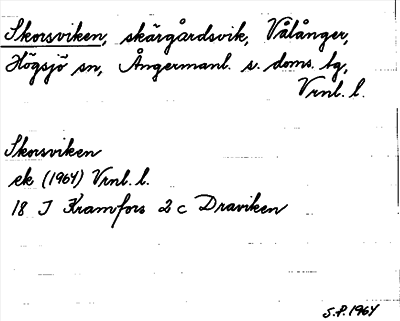 Skorsviken, skärgårdsvik, Vålånger,
Högsjö sn, Ångermanl. s. doms. tg,
Vrnl. l.
Skorsviken
ek (1964) Vrnl. l.
18 I Kramfors 2 c Draviken
S.P. 1964